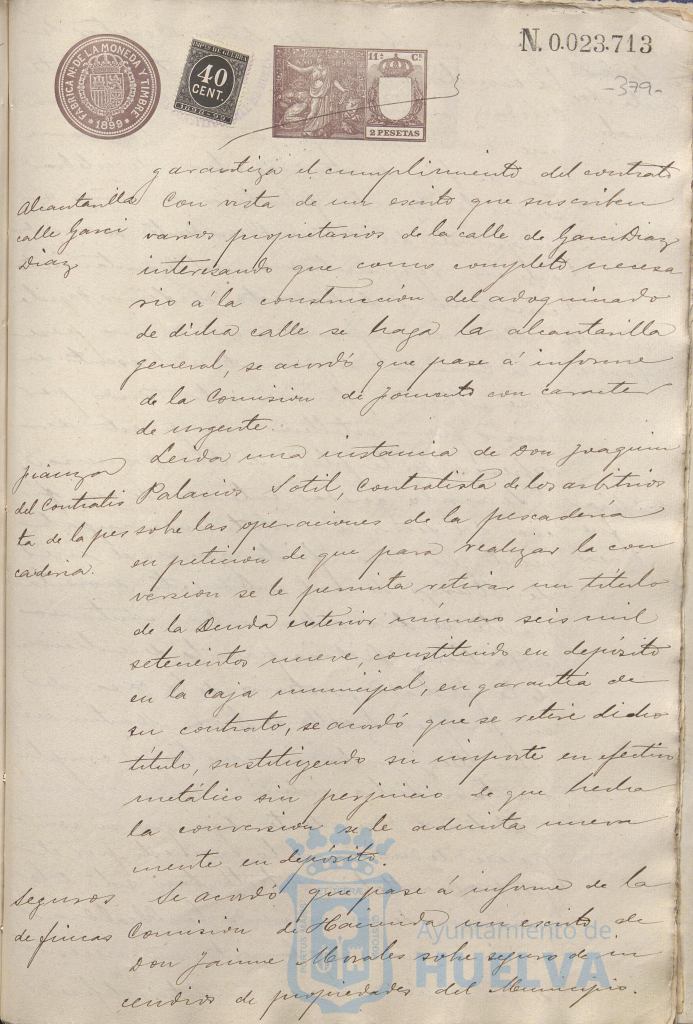 FABRICA Nal. DE LA MONEDA Y TIMBRE
* 1899 *
IMPTO. DE GUERRA
40
CENT.
1898-99
11ª Cl
2 PESETAS
N. 0.023.713
-379-
garantiza el cumplimiento del contrato
Alcantarilla
calle Garci
Diaz
Con vista de un escrito que suscriben
varios propietarios de la calle de Garci Diaz
interesando que como completo necesa
rio á la construccion del adoquinado
de dicha calle se haga la alcantarilla
general, se acordó que pase á informe
de la Comision de Fomento con caracter
de urgente.
fianza
del Contratis
ta de la pes
caderia.
Leida una instancia de Don Joaquin
Palacios Sotil, contratista de los arbitrios
sobre las operaciones de la pescaderia
en peticion de que para realizar la con
version se le permita retirar un titulo
de la Deuda exterior número seis mil
setecientos nueve, constituido en depósito
en la caja municipal, en garantia de
su contrato, se acordó que se retire dicho
título, sustituyendo su importe en efectivo
metálico sin perjuicio de que hecha
la conversion se le admita nueva
mente en depósito.
Seguros
de fincas
Se acordó que pase á informe de la
Comision de Hacienda un escrito de
Don Jaime Morales sobre seguro de in
cendios de propiedades del Municipio.
Ayuntamiento de
HUELVA